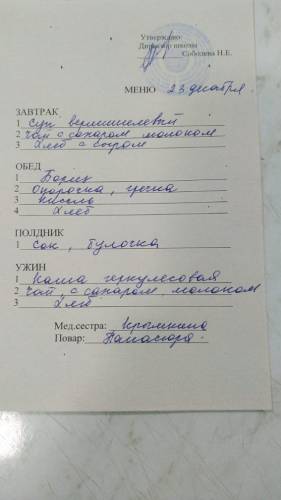 Утверждаю:
Директор школы
Соболева Н.Е.
МЕНЮ 23 декабря
ЗАВТРАК
1 Суп вермишелевый
2 Чай с сахаром молоком
3 Хлеб с сыром
ОБЕД
1 Борщ
2 Окорочка, гречка
3 Кисель
4 Хлеб
ПОЛДНИК
1 Сок, булочка
УЖИН
1 Каша геркулесовая
2 Чай, с сахаром молоком
3 Хлеб
Мед.сестра:
Повар: